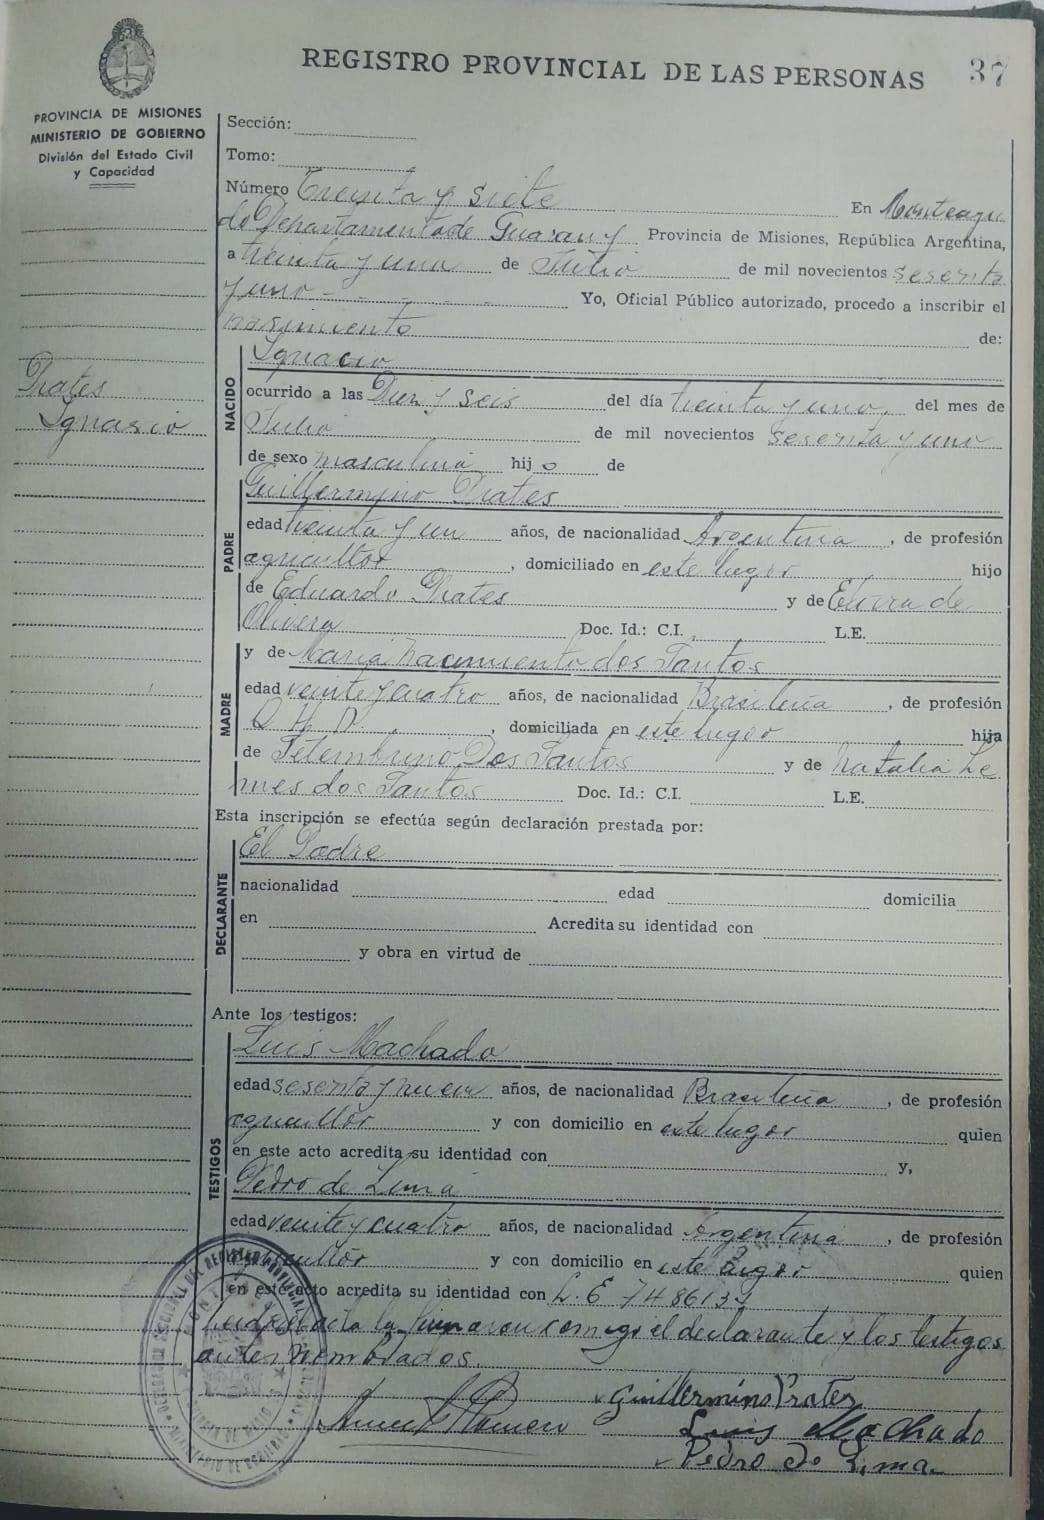 REGISTRO PROVINCIAL DE LAS PERSONAS 37
PROVINCIA DE MISIONES
MINISTERIO DE GOBIERNO
División del Estado Civil
y Capacidad
Sección:
Tomo:
Número Treinta y siete En Monteagu
do Departamento de Guarany Provincia de Misiones, República Argentina,
a treinta y uno de Julio de mil novecientos sesenta
y uno - - - - Yo, Oficial Público autorizado, procedo a inscribir el
nasimiento de:
Prates
Ignasio
NACIDO
Ignacio
ocurrido a las Diez y seis del día treinta y uno, del mes de
Julio de mil novecientos sesenta y uno
de sexo masculino hijo de
PADRE
Guillermino Prates
edad treinta y un años, de nacionalidad Argentina, de profesión
agricultor, domiciliado en este lugar hijo
de Eduardo Prates y de Elvira de
Olivera Doc. Id.: C.I. L.E.
MADRE
y de Maria Nacimiento dos Santos
edad veinte y cuatro años, de nacionalidad Brasileña, de profesión
Q. H. D., domiciliada en este lugar hija
de Setembrino Dos Santos y de Natalia Le
mes dos Santos Doc. Id.: C.I. L.E.
Esta inscripción se efectúa según declaración prestada por:
DECLARANTE
El Padre
nacionalidad edad domicilia
en Acredita su identidad con
y obra en virtud de
Ante los testigos:
TESTIGOS
Luis Machado
edad sesenta y nueve años, de nacionalidad Brasileña, de profesión
agricultor y con domicilio en este lugar quien
en este acto acredita su identidad con y,
Pedro de Lima
edad veinte y cuatro años, de nacionalidad Argentina, de profesión
agricultor y con domicilio en este lugar quien
en este acto acredita su identidad con L. E
la firmaron comigo el declarante y los testigos
antes nombrados.
Guillermino Prates
Luis Machado
Pedro de Lima